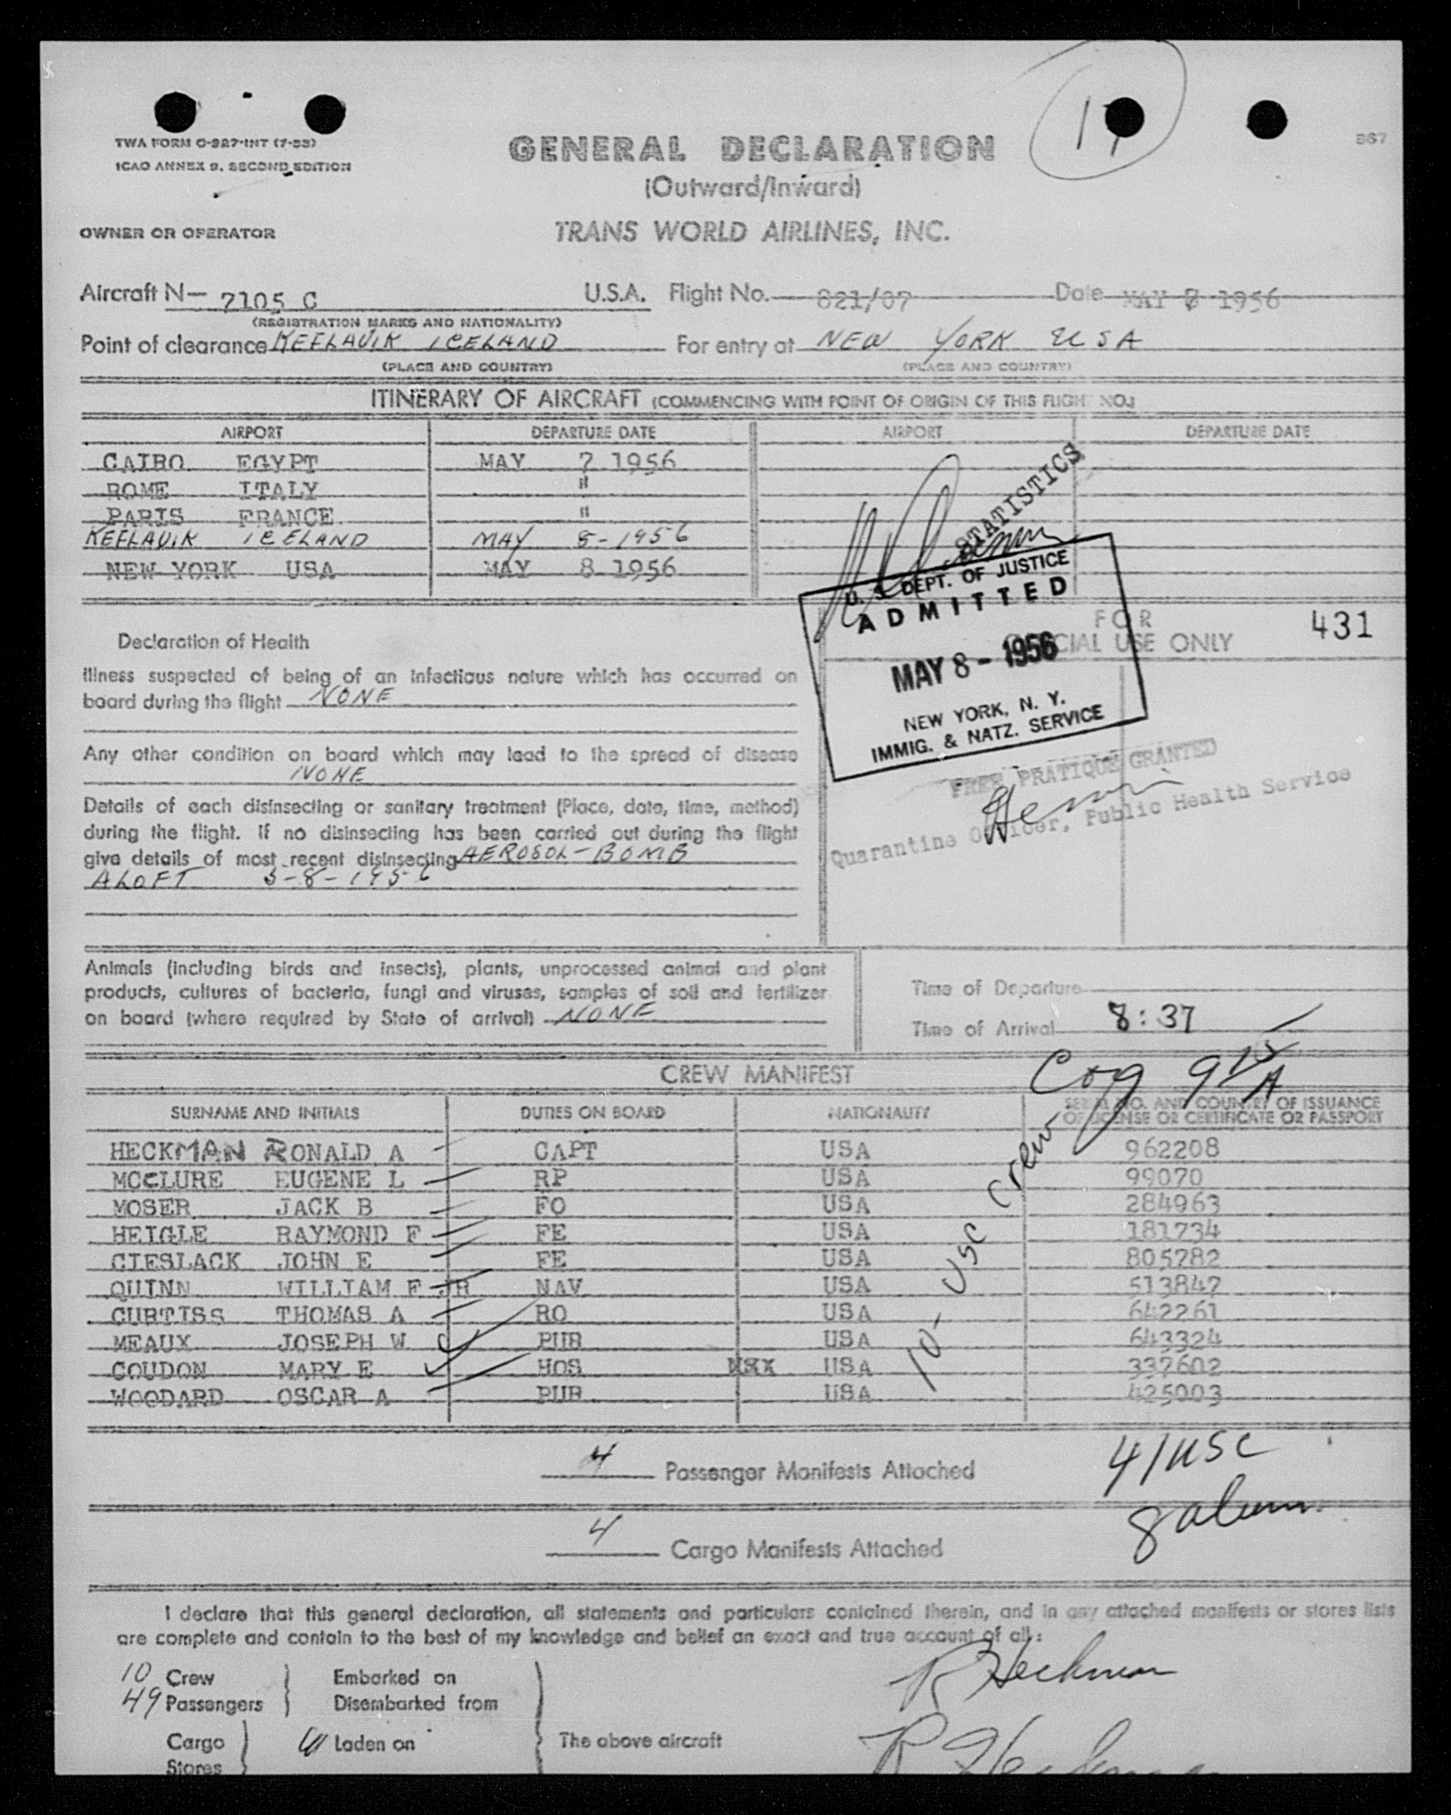 17
867
TWA FORM O-927-INT (7-53)
ICAO ANNEX 9, SECOND EDITION
GENERAL DECLARATION
(Outward/Inward)
OWNER OR OPERATOR
TRANS WORLD AIRLINES, INC.
Aircraft N— 7105 C U.S.A. Flight No. 821/07 Date MAY 8 1956
(REGISTRATION MARKS AND NATIONALITY)
Point of clearance KEFLAVIK ICELAND For entry at NEW YORK USA
(PLACE AND COUNTRY) (PLACE AND COUNTRY)
ITINERARY OF AIRCRAFT (COMMENCING WITH POINT OF ORIGIN OF THIS FLIGHT NO.)
AIRPORT DEPARTURE DATE AIRPORT DEPARTURE DATE
CAIRO EGYPT MAY 7 1956
ROME ITALY "
PARIS FRANCE "
KEFLAVIK ICELAND MAY 8-1956
NEW YORK USA MAY 8 1956
STATISTICS
U. S. DEPT. OF JUSTICE
ADMITTED
MAY 8 - 1956
NEW YORK, N. Y.
IMMIG. & NATZ. SERVICE
FOR
OFFICIAL USE ONLY
431
Declaration of Health
Illness suspected of being of an infectious nature which has occurred on
board during the flight NONE
Any other condition on board which may lead to the spread of disease
NONE
Details of each disinsecting or sanitary treatment (Place, date, time, method)
during the flight. If no disinsecting has been carried out during the flight
give details of most recent disinsecting AEROSOL-BOMB
ALOFT 5-8-1956
FREE PRATIQUE GRANTED
Quarantine Officer, Public Health Service
Animals (including birds and insects), plants, unprocessed animal and plant
products, cultures of bacteria, fungi and viruses, samples of soil and fertilizer
on board (where required by State of arrival) NONE
Time of Departure
Time of Arrival 8:37
CREW MANIFEST
SURNAME AND INITIALS DUTIES ON BOARD NATIONALITY SERIAL NO. AND COUNTRY OF ISSUANCE
OF LICENSE OR CERTIFICATE OR PASSPORT
HECKMAN RONALD A CAPT USA 962208
MCCLURE EUGENE L RP USA 99070
MOSER JACK B FO USA 284963
HEIGLE RAYMOND F FE USA 181734
CIESLACK JOHN E FE USA 805782
QUINN WILLIAM F JR NAV USA 513847
CURTISS THOMAS A RO USA 642261
MEAUX JOSEPH W PUR USA 643324
COUDON MARY E HOS USA 337602
WOODARD OSCAR A PUR USA 425003
10- USC Crew
4 Passenger Manifests Attached
41 USC
4 Cargo Manifests Attached
I declare that this general declaration, all statements and particulars contained therein, and in any attached manifests or stores lists
are complete and contain to the best of my knowledge and belief an exact and true account of all:
10 Crew Embarked on
49 Passengers Disembarked from
Cargo Laden on The above aircraft
Stores
R Heckman
R Heckman